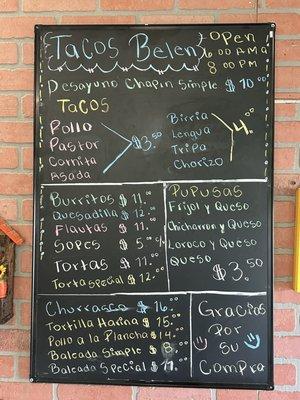 Tacos Belen
Open
6:00 AM A
8 PM
Desayuno Chapin Simple $ 10.00
Tacos
Pollo
Pastor
Carnita
Asada
$3.50
Birria
Lengua
Tripa
Chorizo
4.00
Burritos $ 11.00
Quesadilla $ 12.00
Flautas $ 11.00
Sopes $ 5.00
Tortas $ 11.00
Torta Special $ 12.00
Pupusas
Frijol y Queso
Chicharron y Queso
Loroco y Queso
Queso
$3.50
Churrasco $ 16.00
Tortilla Harina $ 15.00
Pollo a la Plancha $ 14.00
Baleada Simple $ 8.00
Baleada Special $
Gracias
Por
Su
Compra